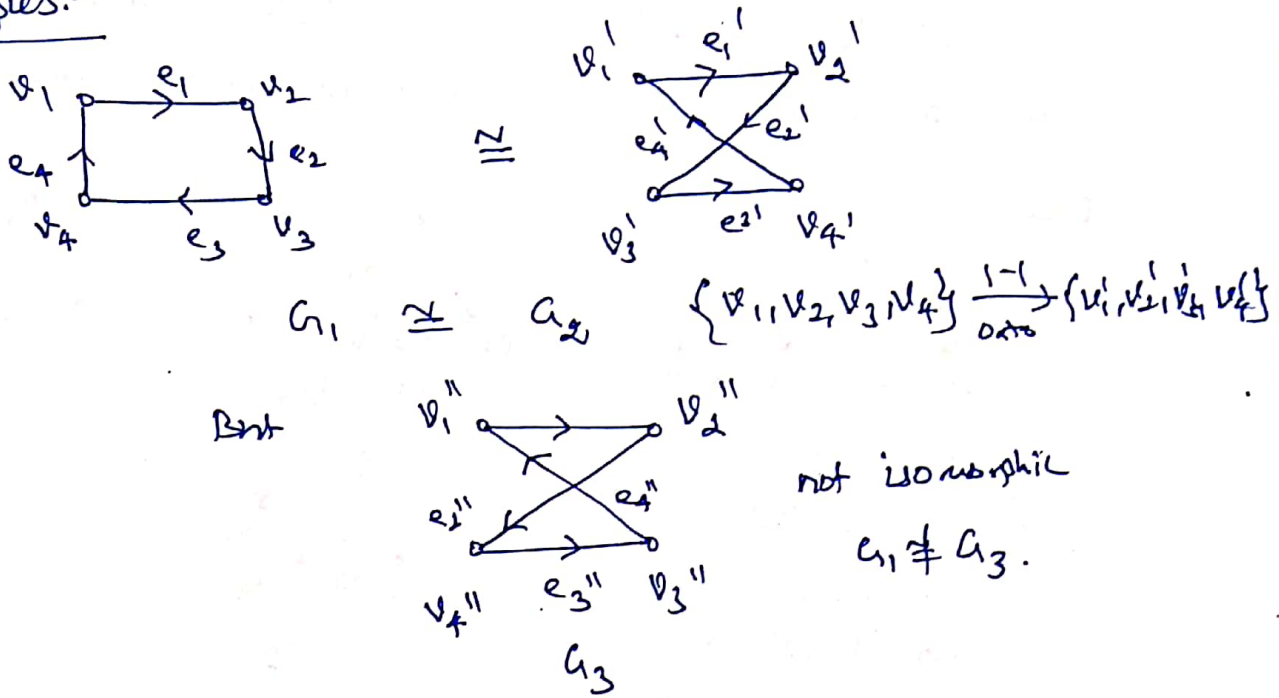 v₁ e₁ v₂
e₄ e₂
v₄ e₃ v₃
≅
v₁' e₁' v₂'
e₄' e₂'
v₃' e₃' v₄'
G₁ ≅ G₂ {v₁, v₂, v₃, v₄} 1-1 onto {v₁', v₂', v₃', v₄'}
But
v₁'' v₂''
e₂'' e₄''
v₄'' e₃'' v₃''
not isomorphic
G₁ ≇ G₃.
G₃